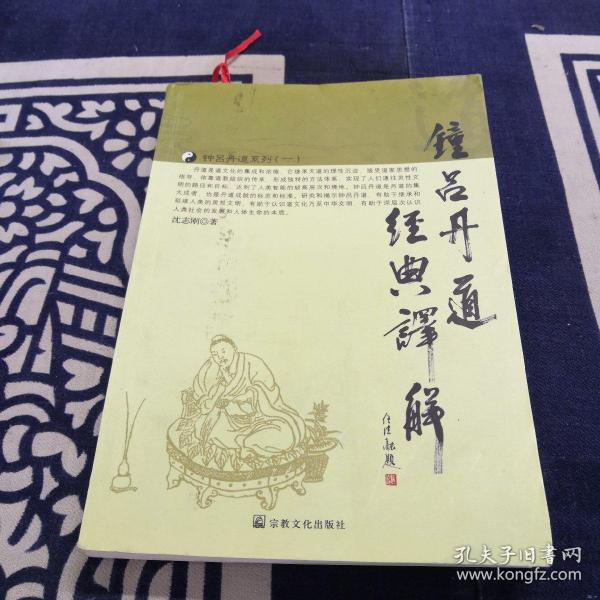 鐘呂丹道
經典譯解
任法融題
钟吕丹道系列(一)
丹道是道文化的集成和浓缩，它继承天道的理性沉迹，接受道家思想的
指导，依靠道教组织的传承，形成独特的方法体系，实现了人们通往灵性文
明的路径和目标，达到了人类智能的较高层次和境地。钟吕丹道是丹道的集
大成者，也是丹道成就的标志和标准。研究和揭示钟吕丹道，有助于继承和
延续人类的灵性文明，有助于认识道文化乃至中华文明，有助于深层次认识
人类社会的发展和人体生命的本质。
沈志刚◎著
宗教文化出版社
孔夫子旧书网
www.kongfz.com